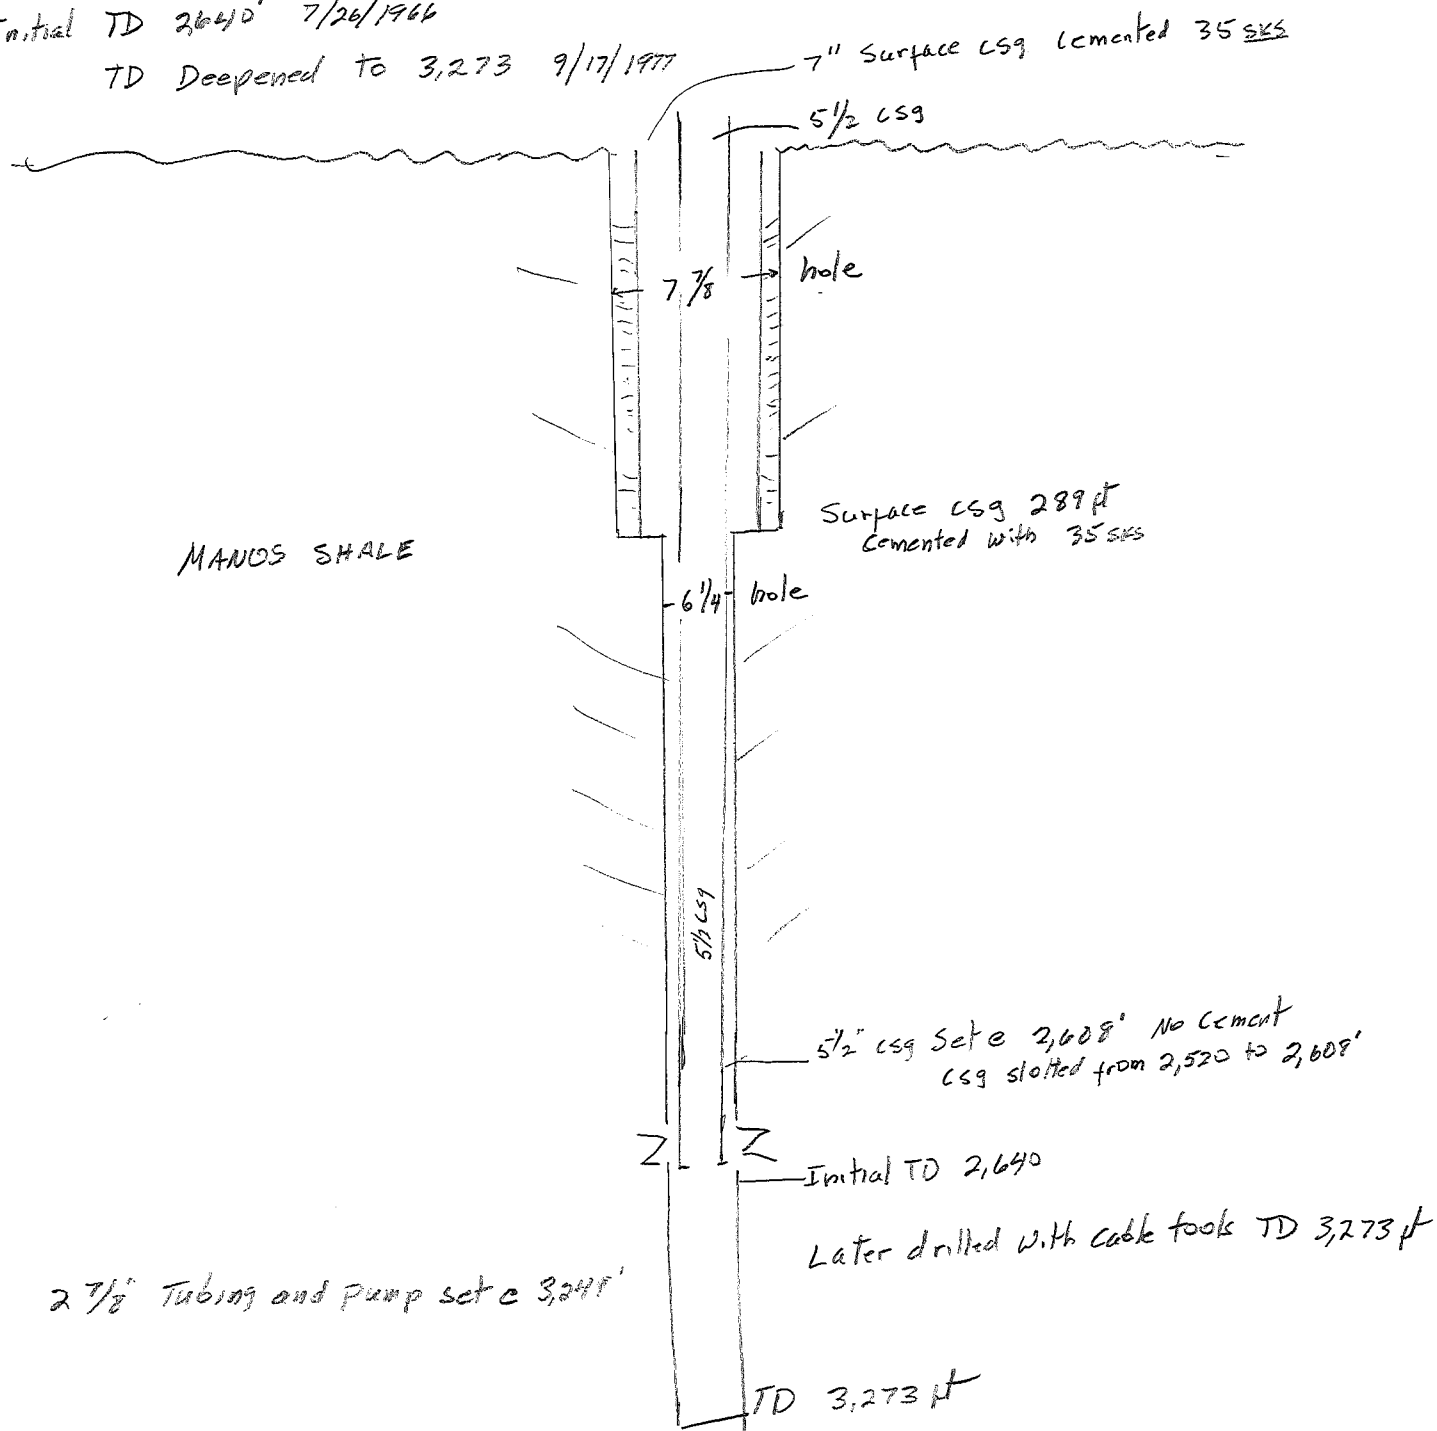 Initial TD 2640' 7/26/1966
TD Deepened to 3,273 9/17/1977
7" Surface csg Cemented 35 sks
5 1/2 csg
7 7/8 hole
Surface csg 289 ft
Cemented with 35 sks
MANOS SHALE
6 1/4 hole
5 1/2 csg
5 1/2" csg Set @ 2,608' No Cement
csg slotted from 2,520 to 2,608'
Initial TD 2,640
Later drilled with cable tools TD 3,273 ft
2 7/8" Tubing and pump set @
TD 3,273 ft